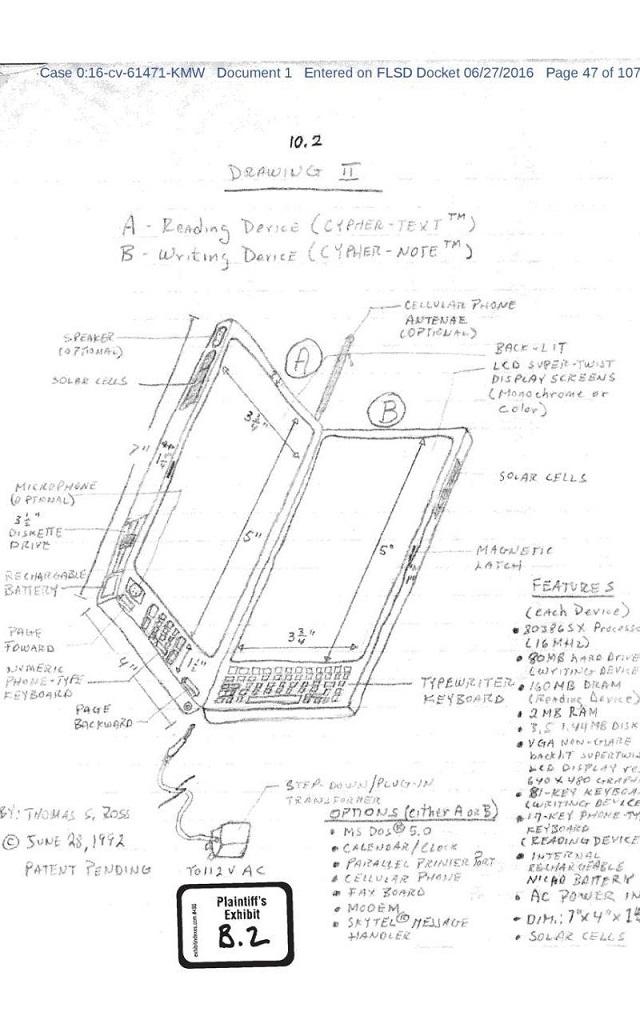 Case 0:16-cv-61471-KMW Document 1 Entered on FLSD Docket 06/27/2016 Page 47 of 107
10.2
DRAWING II
A - Reading Device (CYPHER-TEXT™)
B - Writing Device (CYPHER-NOTE™)
CELLULAR PHONE
ANTENAE
(OPTIONAL)
SPEAKER
(OPTIONAL)
SOLAR CELLS
A
BACK-LIT
LCD SUPER-TWIST
DISPLAY SCREENS
(Monochrome or
Color)
B
3 3/4"
7"
SOLAR CELLS
MICROPHONE
(OPTIONAL)
3 1/2"
DISKETTE
DRIVE
5"
5"
MAGNETIC
LATCH
RECHARGABLE
BATTERY
PAGE
FOWARD
NUMERIC
PHONE-TYPE
KEYBOARD
4"
1 1/2"
3 3/4"
PAGE
BACKWARD
TYPEWRITER
KEYBOARD
FEATURES
(each Device)
• 80386SX Processo
(16MHz)
• 80MB HARD DRIVE
(WRITING DEVICE
• 160MB DRAM
(Reading Device)
• 2 MB RAM
• 3.5 1.44MB DISK
• VGA NON-GLARE
backlit SUPERTWIN
LCD DISPLAY
640 x 480 GRAPH
• 81-KEY KEYBOA
(WRITING DEVICE
• 17-KEY PHONE-TY
KEYBOARD
(READING DEVICE
• INTERNAL
RECHARGEABLE
NICAD BATTERY
• AC POWER IN
- DIM.: 7"x4"x1
• SOLAR CELLS
STEP-DOWN/PLUG-IN
TRANSFORMER
TO 112V AC
OPTIONS (either A or B)
• MS DOS® 5.0
• CALENDAR/CLOCK
• PARALLEL PRINTER PORT
• CELLULAR PHONE
• FAX BOARD
• MODEM
• SKYTEL® MESSAGE
HANDLER
BY: THOMAS S. ROSS
© JUNE 28, 1992
PATENT PENDING
Plaintiff's
Exhibit
B.2